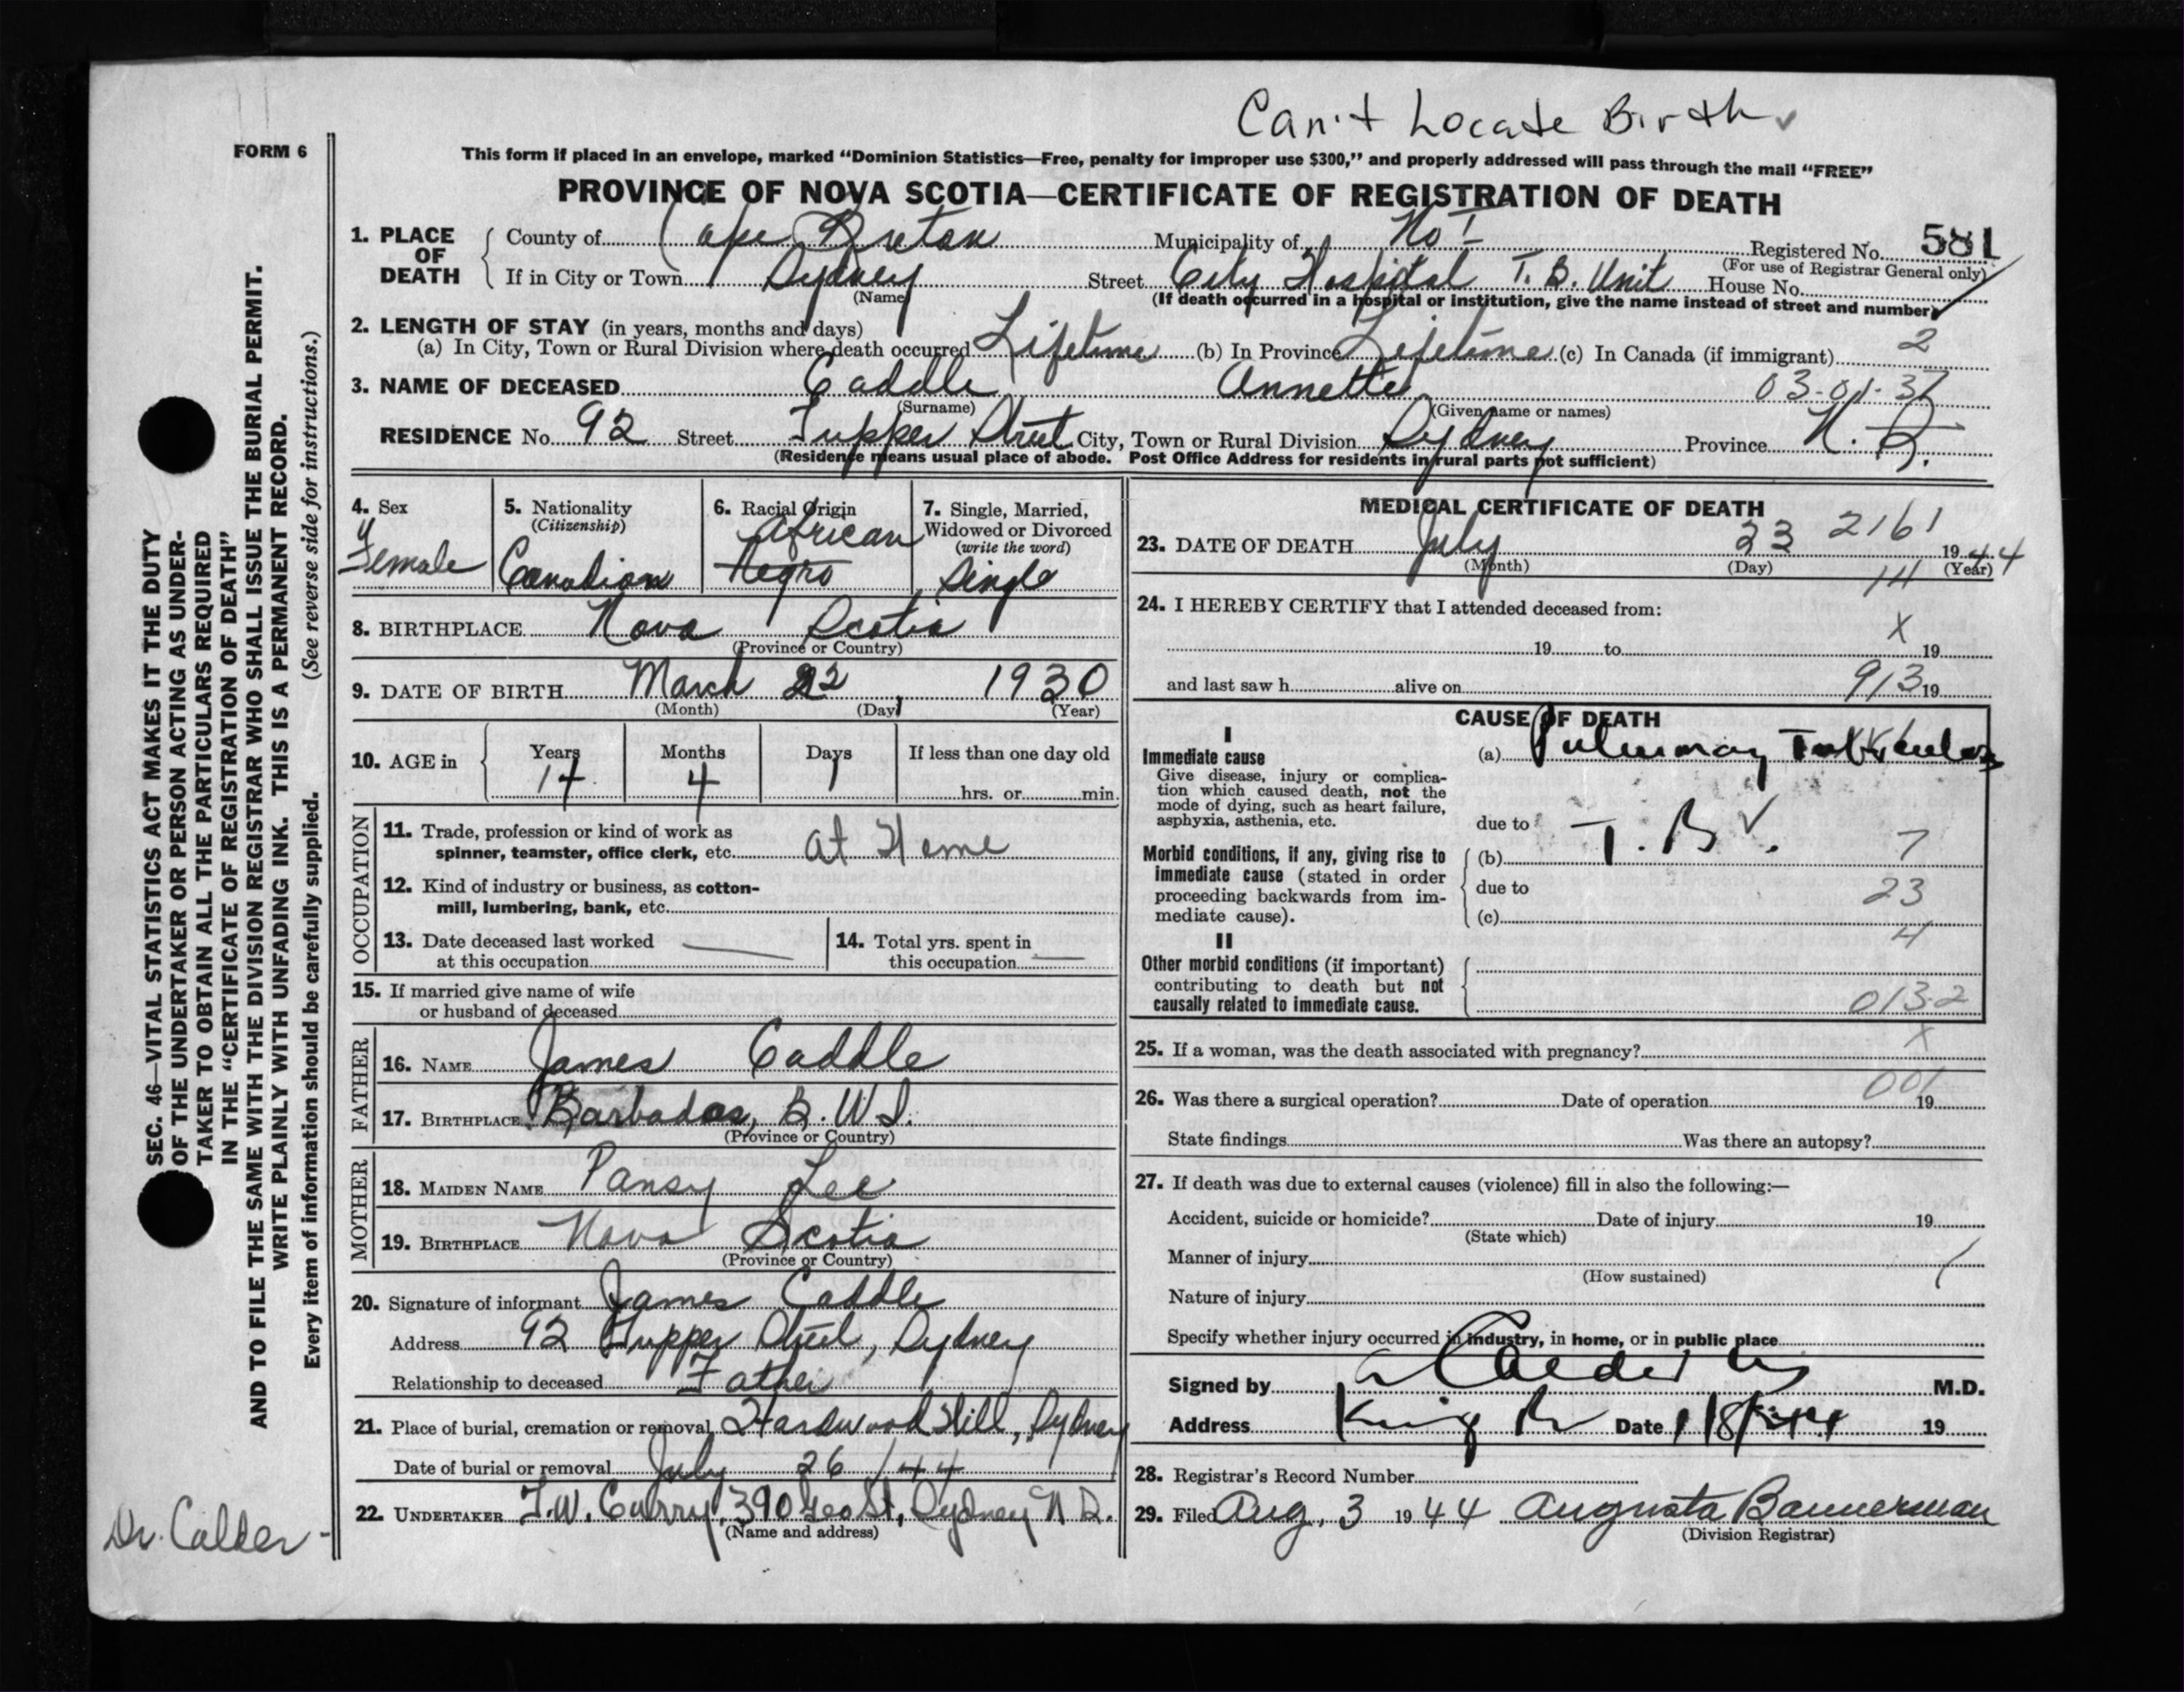 Can't Locate Birth
FORM 6
This form if placed in an envelope, marked "Dominion Statistics—Free, penalty for improper use $300," and properly addressed will pass through the mail "FREE"
PROVINCE OF NOVA SCOTIA—CERTIFICATE OF REGISTRATION OF DEATH
1. PLACE OF DEATH County of Cape Breton Municipality of No 1 Registered No. 581
(For use of Registrar General only)
If in City or Town Sydney Street City Hospital T. B. Unit House No.
(Name) (If death occurred in a hospital or institution, give the name instead of street and number)
2. LENGTH OF STAY (in years, months and days)
(a) In City, Town or Rural Division where death occurred Lifetime (b) In Province Lifetime (c) In Canada (if immigrant) 2
3. NAME OF DECEASED Caddle Annette 03-01-37
(Surname) (Given name or names)
RESIDENCE No. 92 Street Tupper Street City, Town or Rural Division Sydney Province N. S.
(Residence means usual place of abode. Post Office Address for residents in rural parts not sufficient)
4. Sex
Female
5. Nationality
(Citizenship)
Canadian
6. Racial Origin
African
Negro
7. Single, Married,
Widowed or Divorced
(write the word)
Single
8. BIRTHPLACE Nova Scotia
(Province or Country)
9. DATE OF BIRTH March 22, 1930
(Month) (Day) (Year)
10. AGE in Years Months Days If less than one day old
14 4 1 hrs. or min.
OCCUPATION
11. Trade, profession or kind of work as
spinner, teamster, office clerk, etc. at Home
12. Kind of industry or business, as cotton-
mill, lumbering, bank, etc.
13. Date deceased last worked
at this occupation
14. Total yrs. spent in
this occupation
15. If married give name of wife
or husband of deceased
FATHER
16. NAME James Caddle
17. BIRTHPLACE Barbados, B. W. I.
(Province or Country)
MOTHER
18. MAIDEN NAME Pansy Lee
19. BIRTHPLACE Nova Scotia
(Province or Country)
20. Signature of informant James Caddle
Address 92 Tupper Street, Sydney
Relationship to deceased Father
21. Place of burial, cremation or removal Hardwood Hill, Sydney
Date of burial or removal July 26 /44
22. UNDERTAKER T.W. Curry, 390 Geo St, Sydney N S.
(Name and address)
MEDICAL CERTIFICATE OF DEATH
2161
23. DATE OF DEATH July 23 1944
(Month) (Day) (Year)
14
24. I HEREBY CERTIFY that I attended deceased from:
X
19 to 19
and last saw h alive on 913 19
CAUSE OF DEATH
I
Immediate cause
Give disease, injury or complica-
tion which caused death, not the
mode of dying, such as heart failure,
asphyxia, asthenia, etc.
(a) Pulmonary Tuberculosis
due to T. B.
Morbid conditions, if any, giving rise to
immediate cause (stated in order
proceeding backwards from im-
mediate cause).
(b) 7
due to 23
(c) 4
II
Other morbid conditions (if important)
contributing to death but not
causally related to immediate cause.
013-2
25. If a woman, was the death associated with pregnancy? X
001
26. Was there a surgical operation? Date of operation 19
State findings Was there an autopsy?
27. If death was due to external causes (violence) fill in also the following:—
Accident, suicide or homicide? Date of injury 19
(State which)
Manner of injury
(How sustained)
Nature of injury
Specify whether injury occurred in industry, in home, or in public place
Signed by Calder M.D.
Address Date 1/8/44 19
28. Registrar's Record Number
29. Filed Aug. 3 1944 Augusta Bannerman
(Division Registrar)
SEC. 46—VITAL STATISTICS ACT MAKES IT THE DUTY
OF THE UNDERTAKER OR PERSON ACTING AS UNDER-
TAKER TO OBTAIN ALL THE PARTICULARS REQUIRED
IN THE "CERTIFICATE OF REGISTRATION OF DEATH"
AND TO FILE THE SAME WITH THE DIVISION REGISTRAR WHO SHALL ISSUE THE BURIAL PERMIT.
WRITE PLAINLY WITH UNFADING INK. THIS IS A PERMANENT RECORD.
Every item of information should be carefully supplied. (See reverse side for instructions.)
Dr. Calder -